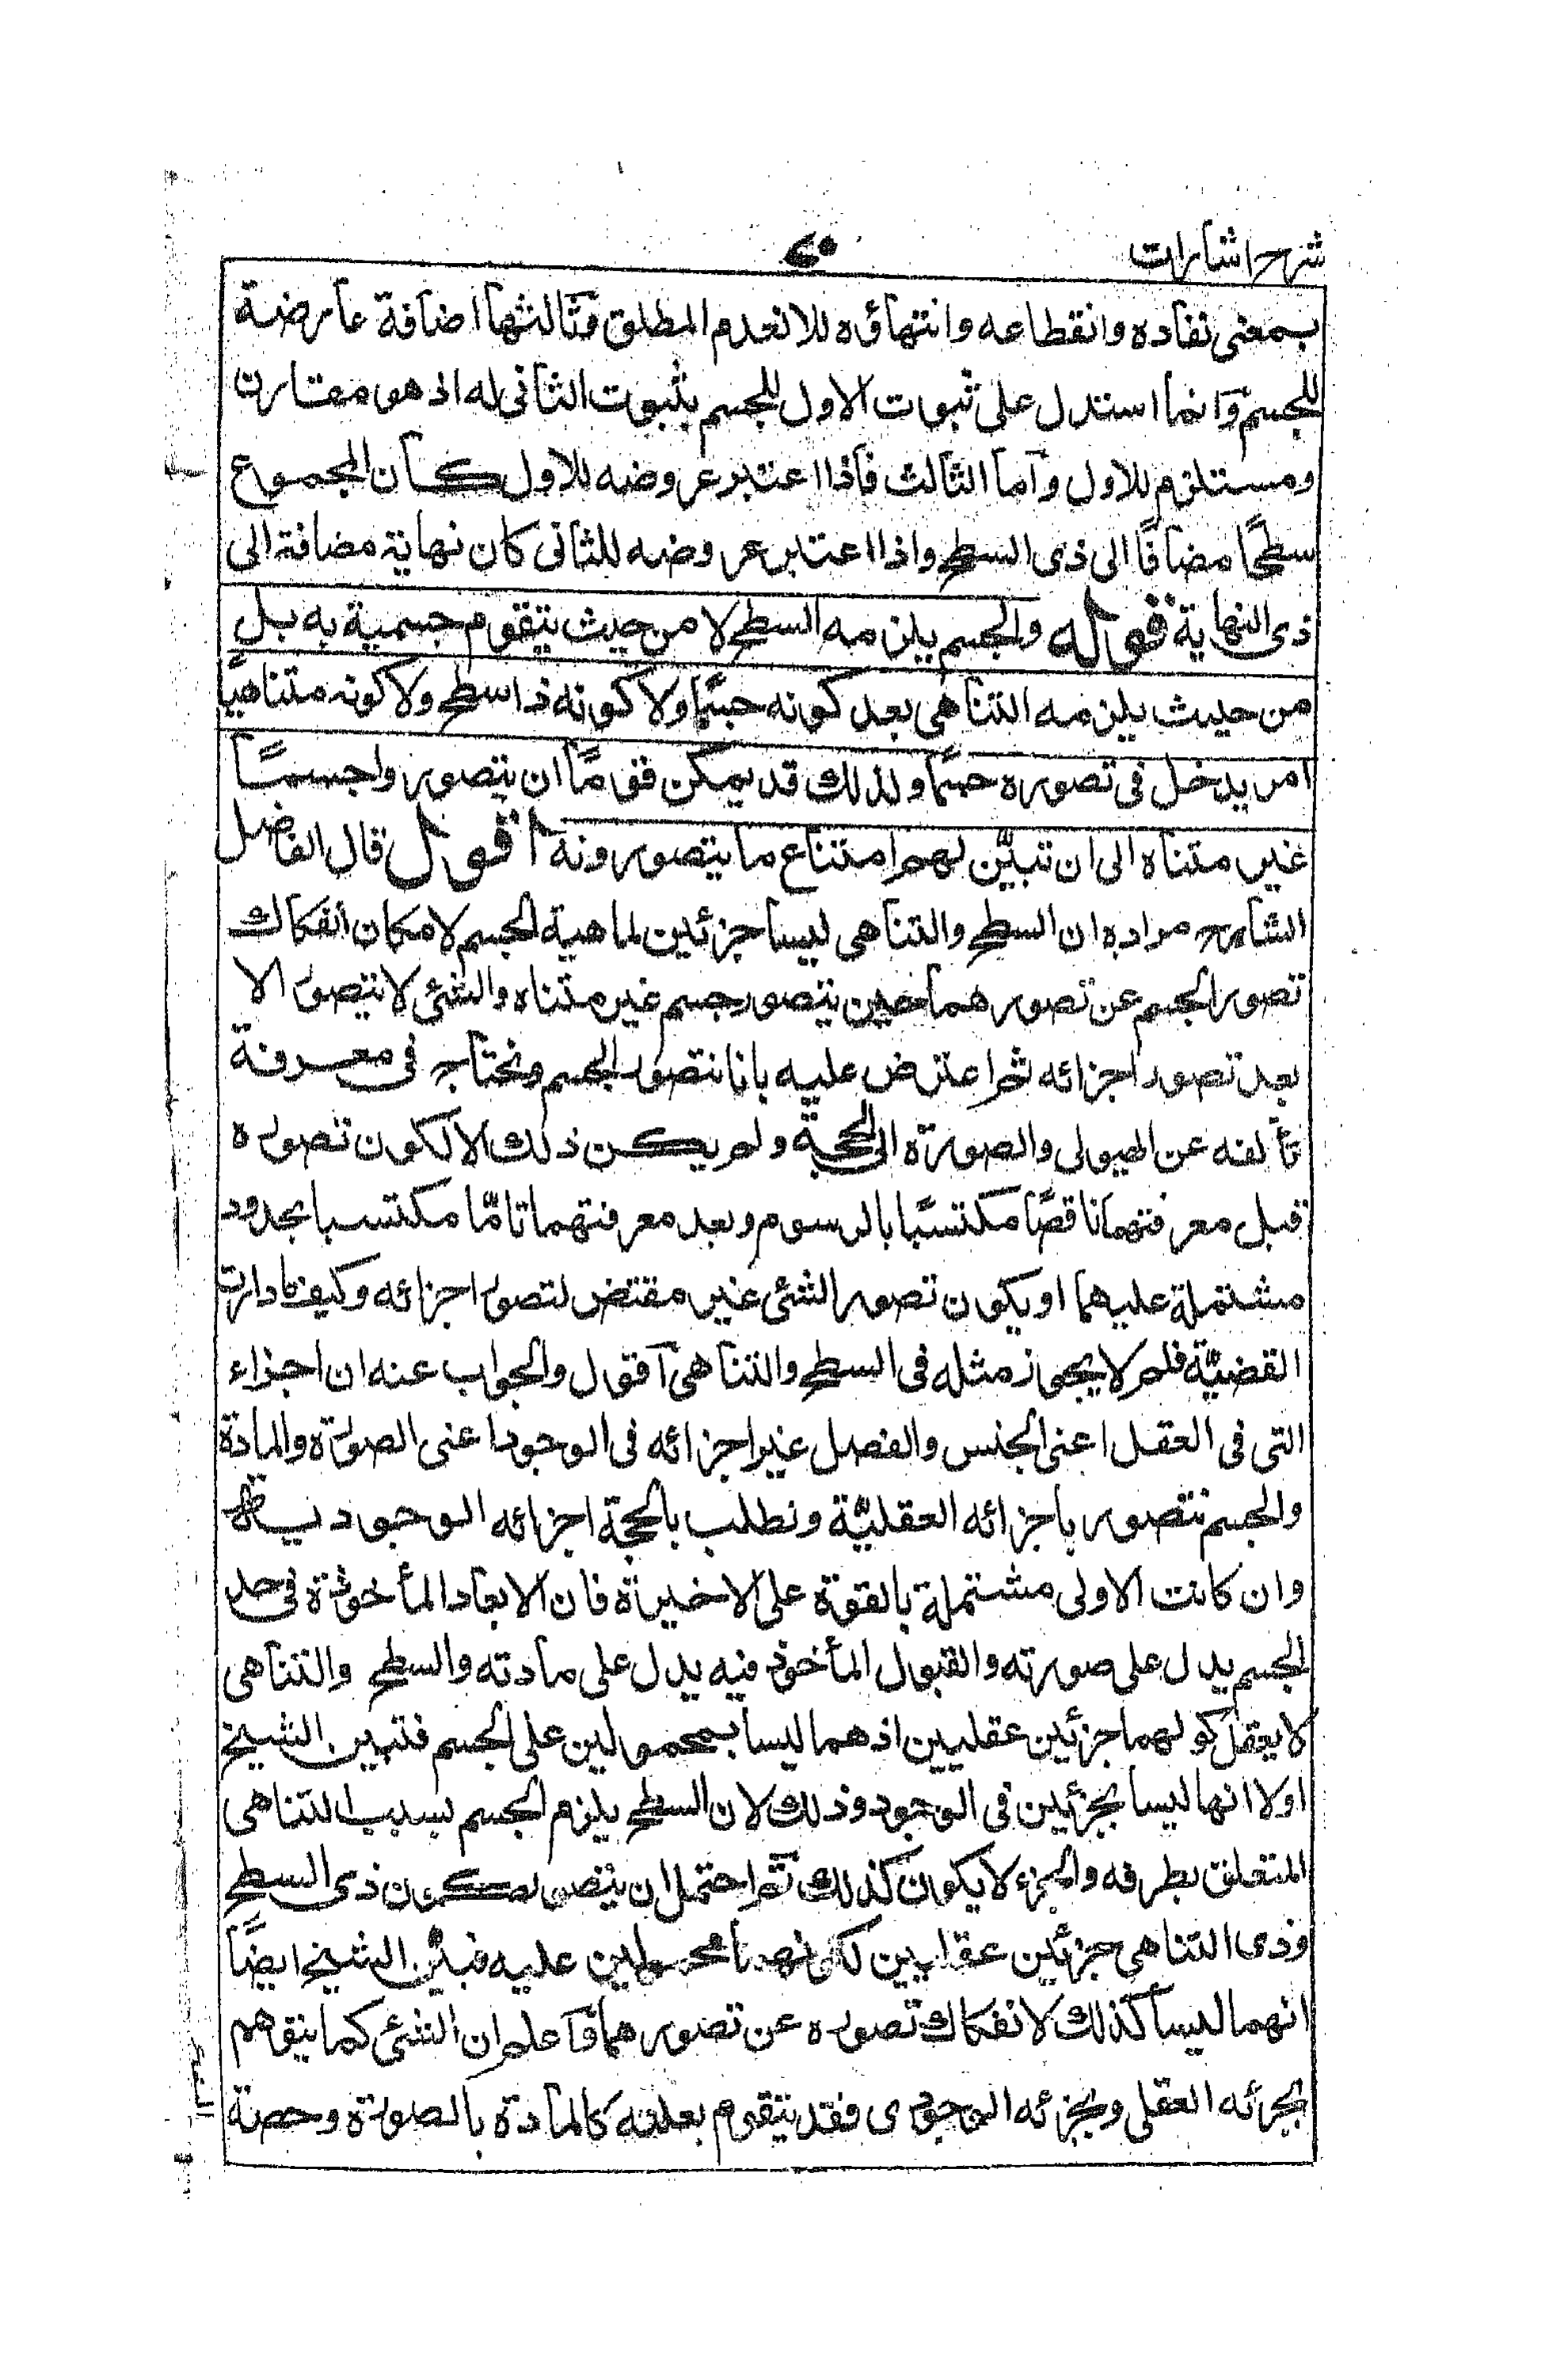 شرح اشارات
بمعنى نفاده وانقطاعه وانتهاؤه للانعدم المطلق وثالثها اضافة عارضة
للجسم وانما استدل على ثبوت الاول للجسم بثبوت الثانى له اذ هو مقارن
ومستلزم للاول واما الثالث فاذا اعتبر عروضه للاول كان المجموع
سطحًا مضافًا الى ذى السطح واذا اعتبر عروضه للثانى كان نهاية مضافة الى
ذى النهاية قوله والجسم يلزمه السطح لا من حيث يتقوم جسمية به بل
من حيث يلزمه التناهى بعد كونه جسمًا ولا كونه ذا سطح ولا كونه متناهيًا
امر يدخل فى تصوره جسمًا ولذلك قد يمكن قومًا ان يتصوروا جسمًا
غير متناه الى ان تبيّن لهم امتناع ما يتصورونه اقول قال الفاضل
الشارح مراده ان السطح والتناهى ليسا جزئين لماهية الجسم لامكان انفكاك
تصور الجسم عن تصورهما حين يتصور جسم غير متناه والشئ لا يتصور الا
بعد تصور اجزائه ثم اعترض عليه بانا نتصور الجسم ونحتاج فى معرفة
تألفه عن الهيولى والصورة الى الحجة ولم يكن ذلك الا لكون تصوره
قبل معرفتهما ناقصًا مكتسبًا بالرسوم وبعد معرفتهما تامًّا مكتسبا بحدود
مشتملة عليهما او يكون تصور الشئ غير مقتض لتصور اجزائه وكيف ما دارت
القضيّة فلم لا يجوز مثله فى السطح والتناهى اقول والجواب عنه ان اجزاء
التى فى العقل اعنى الجنس والفصل غير اجزائه فى الوجود اعنى الصورة والمادة
والجسم نتصور باجزائه العقليّة ونطلب بالحجة اجزائه الوجودية
وان كانت الاولى مشتملة بالقوة على الاخيرة فان الابعاد المأخوذة فى حد
الجسم يدل على صورته والقبول المأخوذ فيه يدل على مادته والسطح والتناهى
لا يعقل كولهما جزئين عقليين اذ هما ليسا بمحمولين على الجسم فتبين الشيخ
اولا انها ليسا بجزئين فى الوجود وذلك لان السطح يلزم الجسم بسبب التناهى
المتعلق بطرفه والجزء لا يكون كذلك ثم احتمل ان يتصور كون ذى السطح
وذى التناهى جزئين عقليين لكونهما محمولين عليه فبيّن الشيخ ايضًا
انهما ليسا كذلك لانفكاك تصوره عن تصورهما واعلم ان الشئ كما يتقوم
بجزئه العقلى وبجزئه الوجودى فقد يتقوم بعلته كالمادة بالصورة وحصة